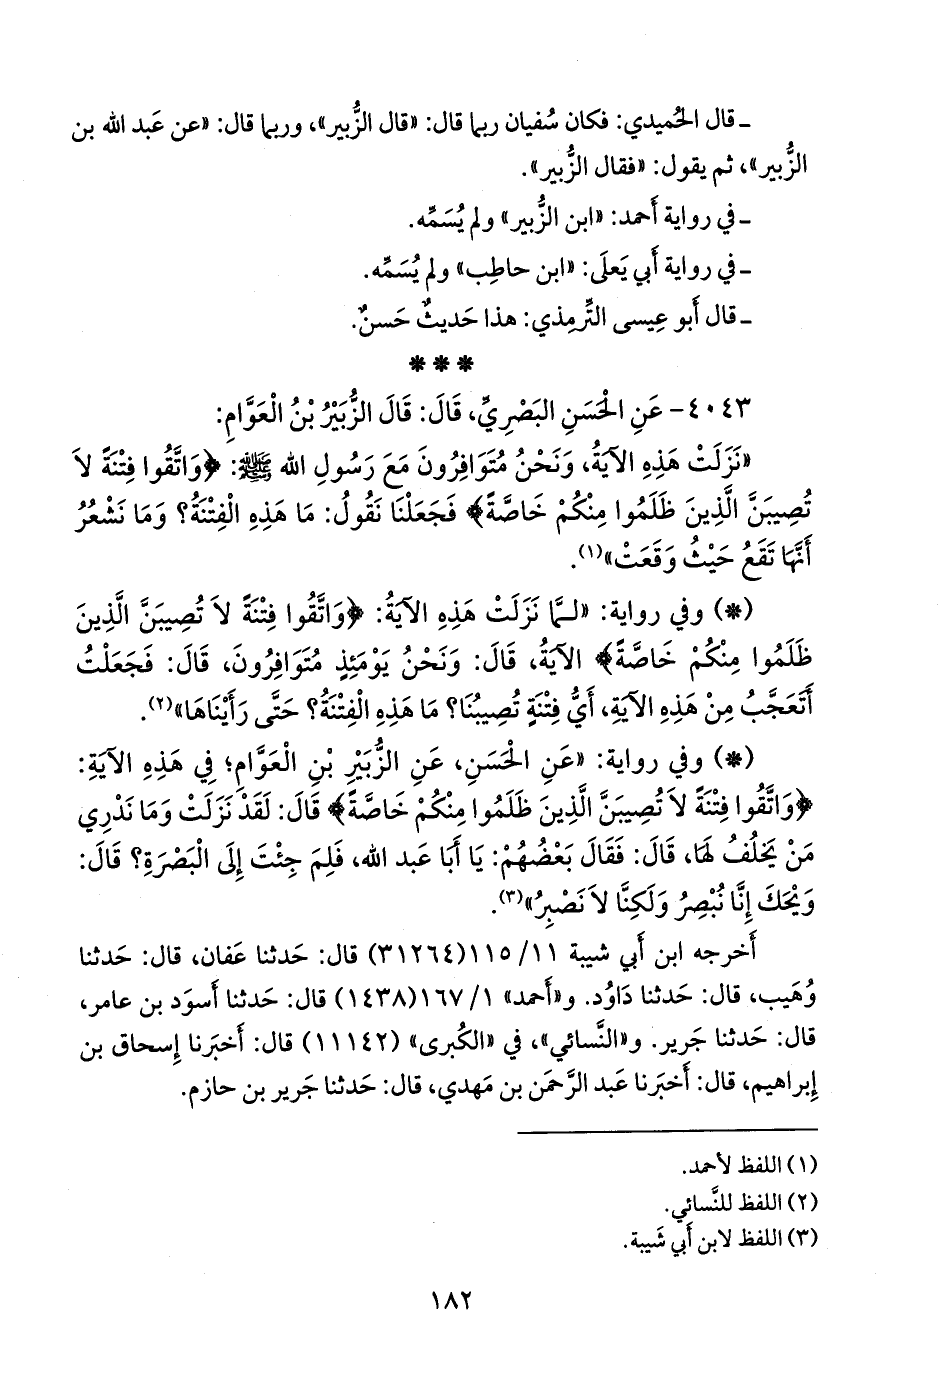 ـ قال الحُميدي: فكان سُفيان ربما قال: «قال الزُّبير»، وربما قال: «عن عَبد الله بن
الزُّبير»، ثم يقول: «فقال الزُّبير».
ـ في رواية أَحمد: «ابن الزُّبير» ولم يُسَمِّه.
ـ في رواية أَبي يَعلَى: «ابن حاطِب» ولم يُسَمِّه.
ـ قال أَبو عِيسى التِّرمِذي: هذا حَديثٌ حَسنٌ.
* * *
٤٠٤٣- عَنِ الْحَسَنِ البَصْرِيِّ، قَالَ: قَالَ الزُّبَيْرُ بْنُ الْعَوَّامِ:
«نَزَلَتْ هَذِهِ الآيَةُ، وَنَحْنُ مُتَوَافِرُونَ مَعَ رَسُولِ الله ﷺ: ﴿وَاتَّقُوا فِتْنَةً لاَ
تُصِيبَنَّ الَّذِينَ ظَلَمُوا مِنْكُمْ خَاصَّةً﴾ فَجَعَلْنَا نَقُولُ: مَا هَذِهِ الْفِتْنَةُ؟ وَمَا نَشْعُرُ
أَنَّهَا تَقَعُ حَيْثُ وَقَعَتْ»(١).
(*) وفي رواية: «لـمَّا نَزَلَتْ هَذِهِ الآيَةُ: ﴿وَاتَّقُوا فِتْنَةً لاَ تُصِيبَنَّ الَّذِينَ
ظَلَمُوا مِنْكُمْ خَاصَّةً﴾ الآيَةُ، قَالَ: وَنَحْنُ يَوْمَئِذٍ مُتَوَافِرُونَ، قَالَ: فَجَعَلْتُ
أَتَعَجَّبُ مِنْ هَذِهِ الآيَةِ، أَيُّ فِتْنَةٍ تُصِيبُنَا؟ مَا هَذِهِ الْفِتْنَةُ؟ حَتَّى رَأَيْنَاهَا»(٢).
(*) وفي رواية: «عَنِ الْحَسَنِ، عَنِ الزُّبَيْرِ بْنِ الْعَوَّامِ؛ فِي هَذِهِ الآيَةِ:
﴿وَاتَّقُوا فِتْنَةً لاَ تُصِيبَنَّ الَّذِينَ ظَلَمُوا مِنْكُمْ خَاصَّةً﴾ قَالَ: لَقَدْ نَزَلَتْ وَمَا نَدْرِي
مَنْ يَخْلُفُ لَهَا، قَالَ: فَقَالَ بَعْضُهُمْ: يَا أَبَا عَبد الله، فَلِمَ جِئْتَ إِلَى الْبَصْرَةِ؟ قَالَ:
وَيْحَكَ إِنَّا نُبْصِرُ وَلَكِنَّا لاَ نَصْبِرُ»(٣).
أَخرجه ابن أَبي شيبة ١١/ ١١٥(٣١٢٦٤) قال: حَدثنا عَفان، قال: حَدثنا
وُهَيب، قال: حَدثنا دَاوُد. و«أَحمد» ١/ ١٦٧(١٤٣٨) قال: حَدثنا أَسوَد بن عامر،
قال: حَدثنا جَرير. و«النَّسائي»، في «الكُبرى» (١١١٤٢) قال: أَخبَرنا إِسحاق بن
إِبراهيم، قال: أَخبَرنا عَبد الرَّحمَن بن مَهدي، قال: حَدثنا جَرير بن حازم.
(١) اللفظ لأَحمد.
(٢) اللفظ للنَّسائي.
(٣) اللفظ لابن أَبي شَيبة.
١٨٢